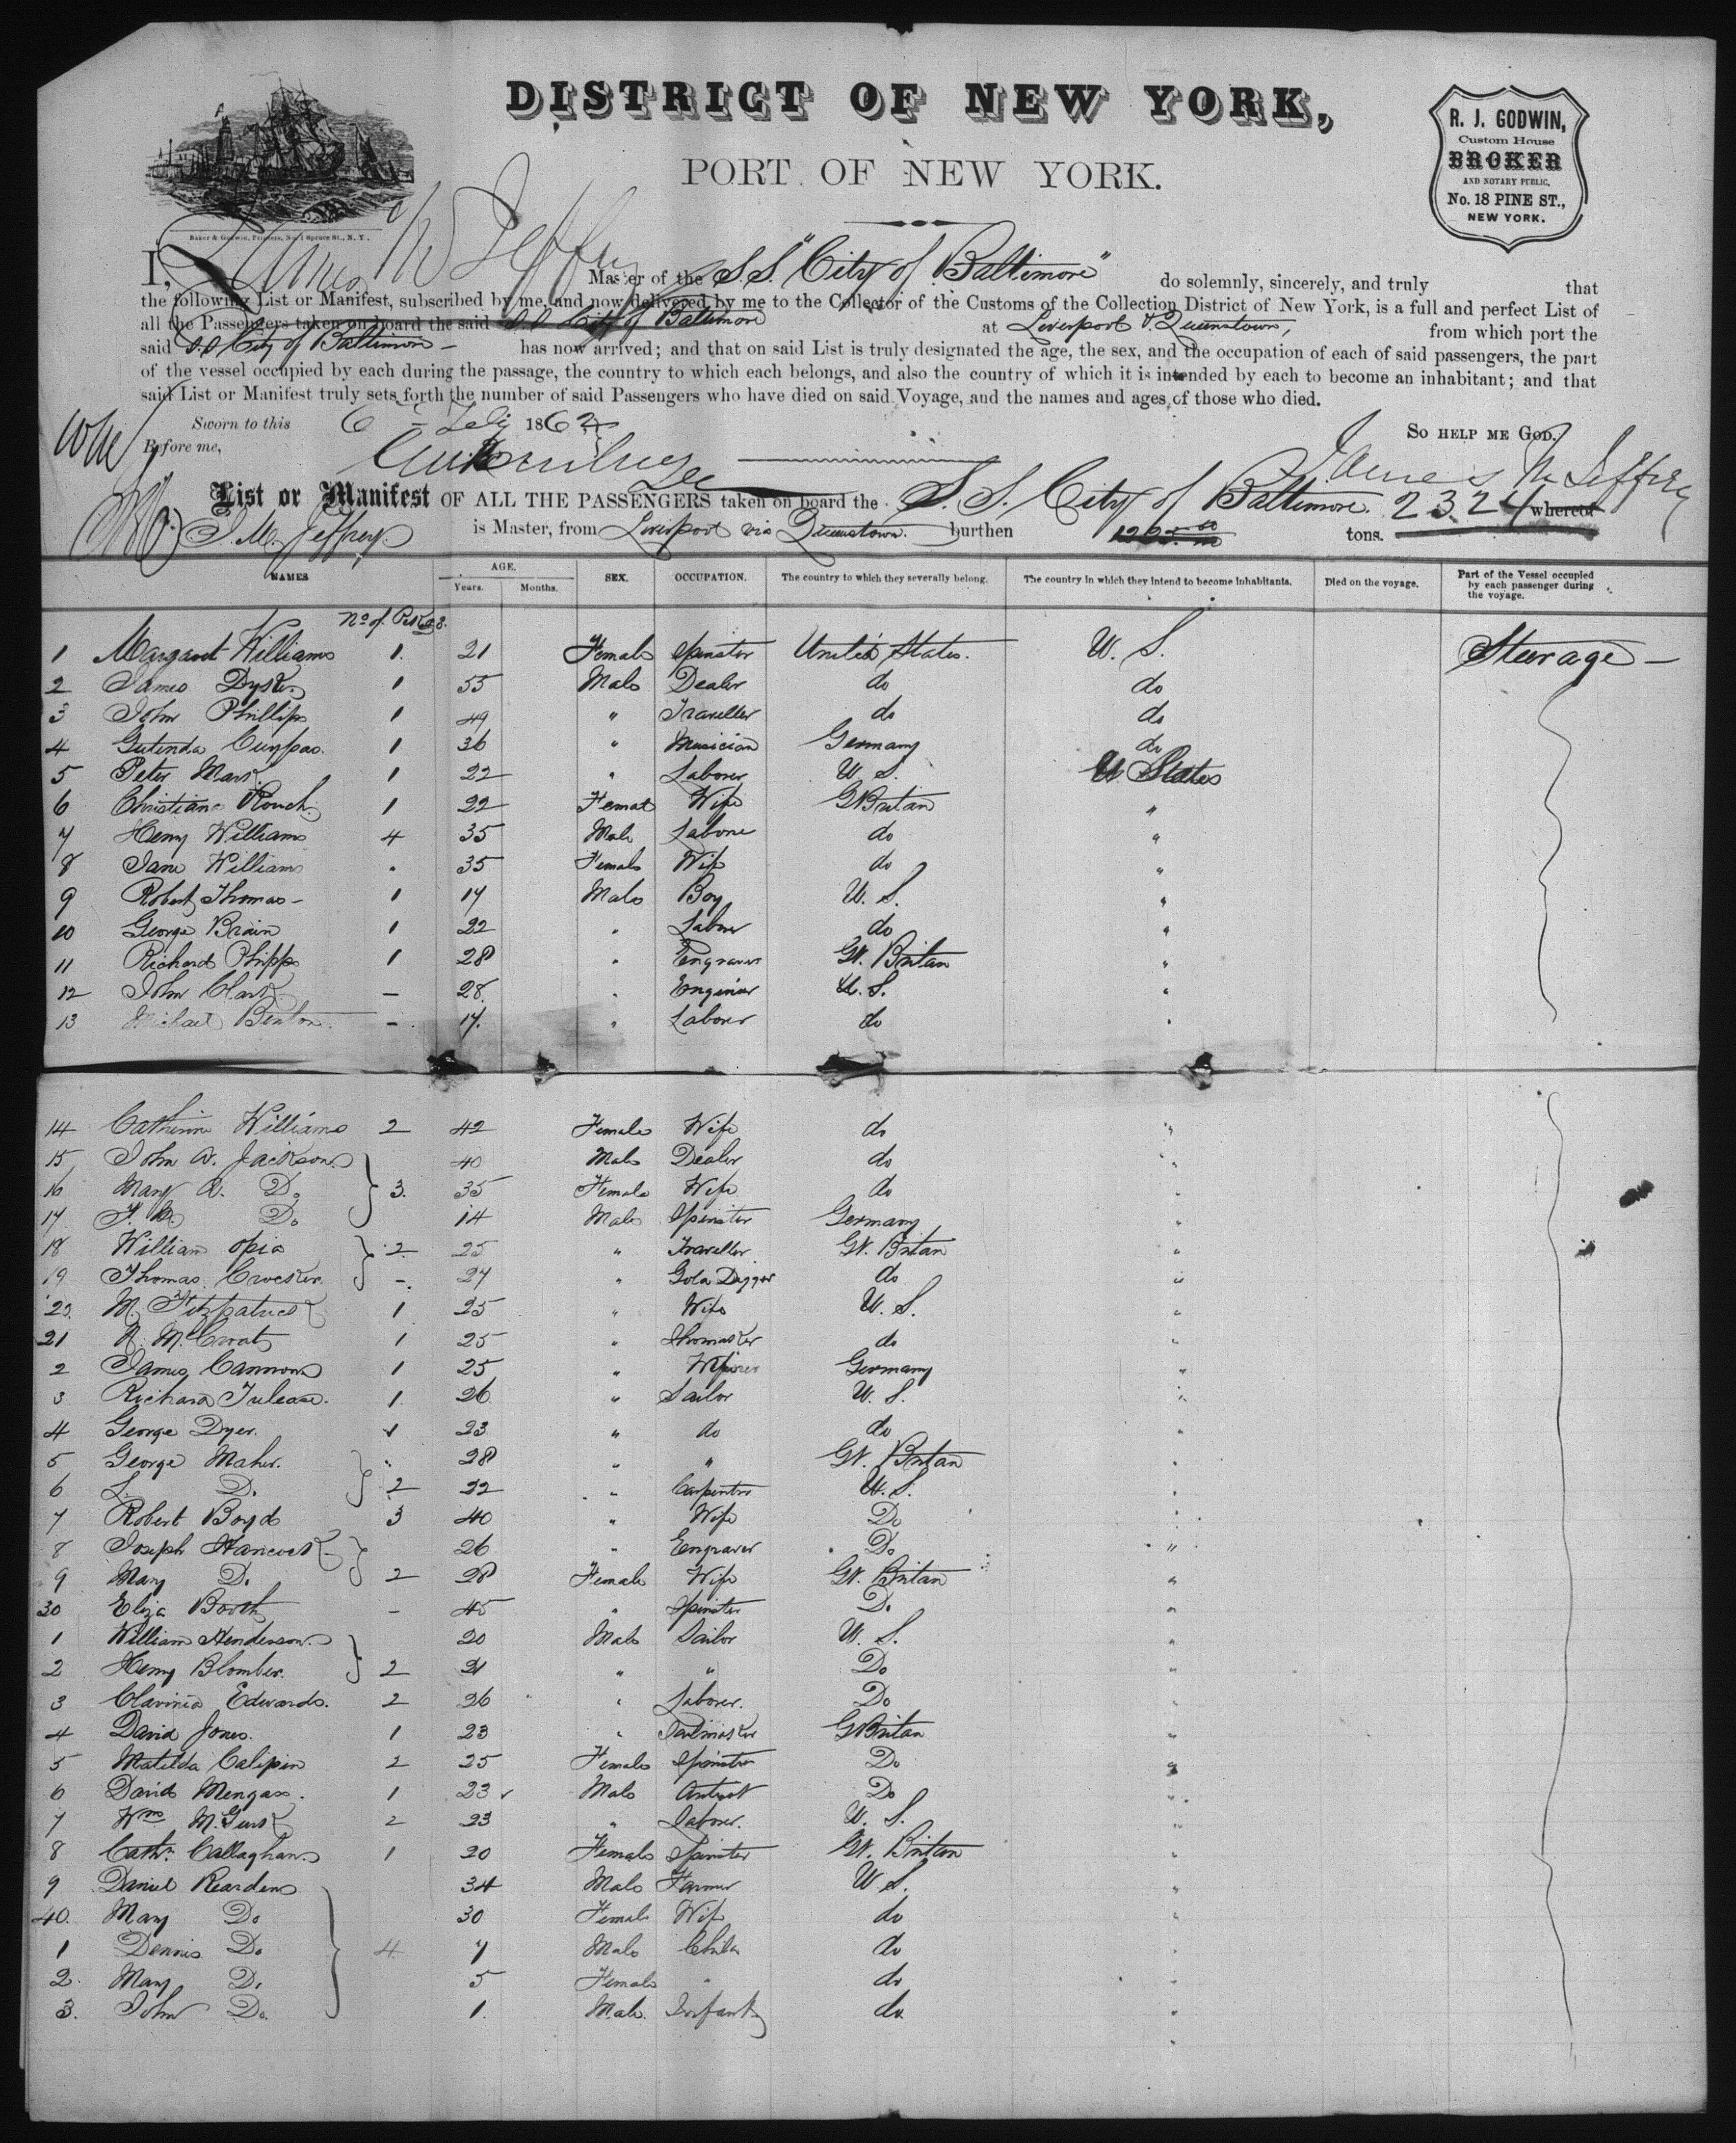 DISTRICT OF NEW YORK,
PORT OF NEW YORK.
R. J. GODWIN,
Custom House
BROKER
AND NOTARY PUBLIC,
No. 18 PINE ST.,
NEW YORK.
Baker & Godwin, Printers, No. 1 Spruce St., N. Y.
I, James M Jeffrey Master of the S.S. "City of Baltimore" do solemnly, sincerely, and truly that
the following List or Manifest, subscribed by me, and now delivered by me to the Collector of the Customs of the Collection District of New York, is a full and perfect List of
all the Passengers taken on board the said S.S City of Baltimore at Liverpool & Queenstown, from which port the
said S.S City of Baltimore has now arrived; and that on said List is truly designated the age, the sex, and the occupation of each of said passengers, the part
of the vessel occupied by each during the passage, the country to which each belongs, and also the country of which it is intended by each to become an inhabitant; and that
said List or Manifest truly sets forth the number of said Passengers who have died on said Voyage, and the names and ages of those who died.
Sworn to this 6 1862
Before me,
SO HELP ME GOD.
James M Jeffrey
List or Manifest OF ALL THE PASSENGERS taken on board the S. S. City of Baltimore. 2324 whereof
J. M. Jeffrey is Master, from Liverpool via Queenstown. burthen tons.
NAMES AGE. Years. Months. SEX. OCCUPATION. The country to which they severally belong. The country in which they intend to become inhabitants. Died on the voyage. Part of the Vessel occupied by each passenger during the voyage.
No of Pckgs.
1 Margaret Williams 1. 21 Female Spinster United States. U. S. Steerage
2 James Dyster 1 55 Male Dealer do do
3 John Phillips 1 49 " Traveller do do
4 1 36 " Musician Germany do
5 Peter Mark 1 22 " Laborer U. S. U States
6 Christiane Rouch 1 22 Female Wife G Britan "
7 Henry Williams 4 35 Male Labore do "
8 Jane Williams " 35 Female Wife do "
9 Robert Thomas 1 17 Male Boy U. S. "
10 George Brain 1 22 " Laborer do "
11 Richard Phipps 1 28 " Engraver Gt. Britan "
12 John Clark — 28 " Engineer U. S. "
13 Michael Benton — 17. " Laborer do "
14 Catherine Williams 2 42 Female Wife do "
15 John W. Jackson 40 Male Dealer do "
16 Mary A. Do 3. 35 Female Wife do "
17 Do 14 Male Spinster Germany "
18 William Opie 2 25 " Traveller Gt. Britan "
19 Thomas Crocker — 27 " Gold Digger do "
20 M. Fitzpatrick 1 25 " Wife U. S. "
21 1 25 " Shomaker do "
2 James Cannon 1 25 " Germany "
3 Richard 1 26 " Sailor U. S. "
4 George Dyer. 1 23 " do do "
5 George Maher. 28 " " Gt. Britan "
6 L. Do 2 22 " Carpenter U. S. "
7 Robert Boyd 3 40 " Wife Do "
8 Joseph Hancock 26 " Engraver Do "
9 Mary Do 2 28 Female Wife Gt. Britan "
30 Eliza Booth — 45 " Spinster Do "
1 William Henderson 20 Male Sailor U. S. "
2 Henry Blomber. 2 21 " " Do "
3 Clavinia Edwards. 2 26 " Laborer. Do "
4 David Jones. 1 23 " Sailmaker G Britan "
5 Matilda Calipin 2 25 Female Spinster Do "
6 David Mengas. 1 23 Male Do "
7 Wm M. Gurk 2 23 " Laborer. U. S. "
8 Cathn Callaghan 1 20 Female Spinster Gt. Britan "
9 Daniel Rearden 34 Male Farmer U S. "
40. Mary Do 30 Female Wife do "
1 Dennis Do 4 7 Male Child do "
2 Mary Do 5 Female " do "
3. John Do. 1. Male. Infant do. "